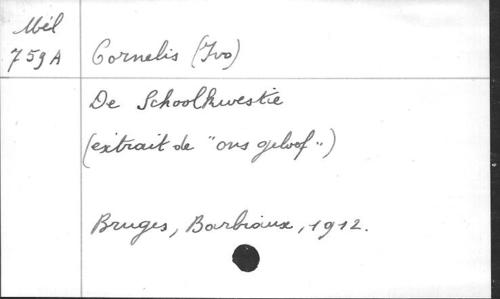 Mél
759A
Cornelis (Ivo)
De Schoolkwestie
(extrait de "ons geloof")
Bruges, Barbiaux, 1912.